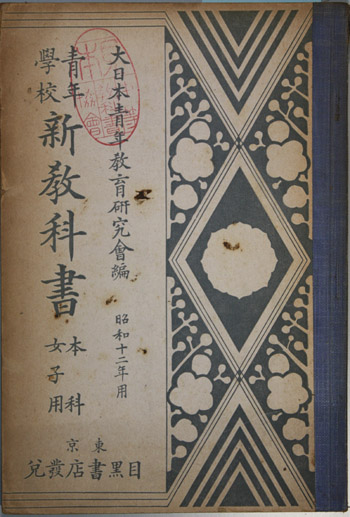 大日本青年教育研究會編
昭和十二年用
青年學校
新教科書
本科
女子用
東京
目黑書店發兌